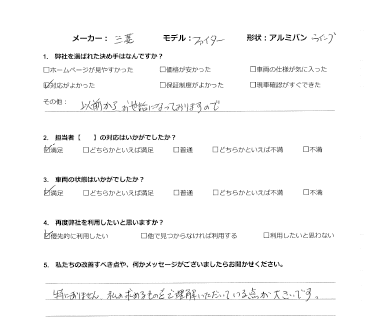 メーカー： 三菱 モデル：ファイター 形状：アルミバン ウイング
1. 弊社を選ばれた決め手はなんですか？
□ホームページが見やすかった □価格が安かった □車両の仕様が気に入った
☑対応がよかった □保証制度がよかった □現車確認がすぐできた
その他： 以前からお世話になっておりますので
2. 担当者【 】の対応はいかがでしたか？
☑満足 □どちらかといえば満足 □普通 □どちらかといえば不満 □不満
3. 車両の状態はいかがでしたか？
☑満足 □どちらかといえば満足 □普通 □どちらかといえば不満 □不満
4. 再度弊社を利用したいと思いますか？
☑優先的に利用したい □他で見つからなければ利用する □利用したいと思わない
5. 私たちの改善すべき点や、何かメッセージがございましたらお聞かせください。
特にありません 私の求めるものをご理解いただいている点が大きいです。